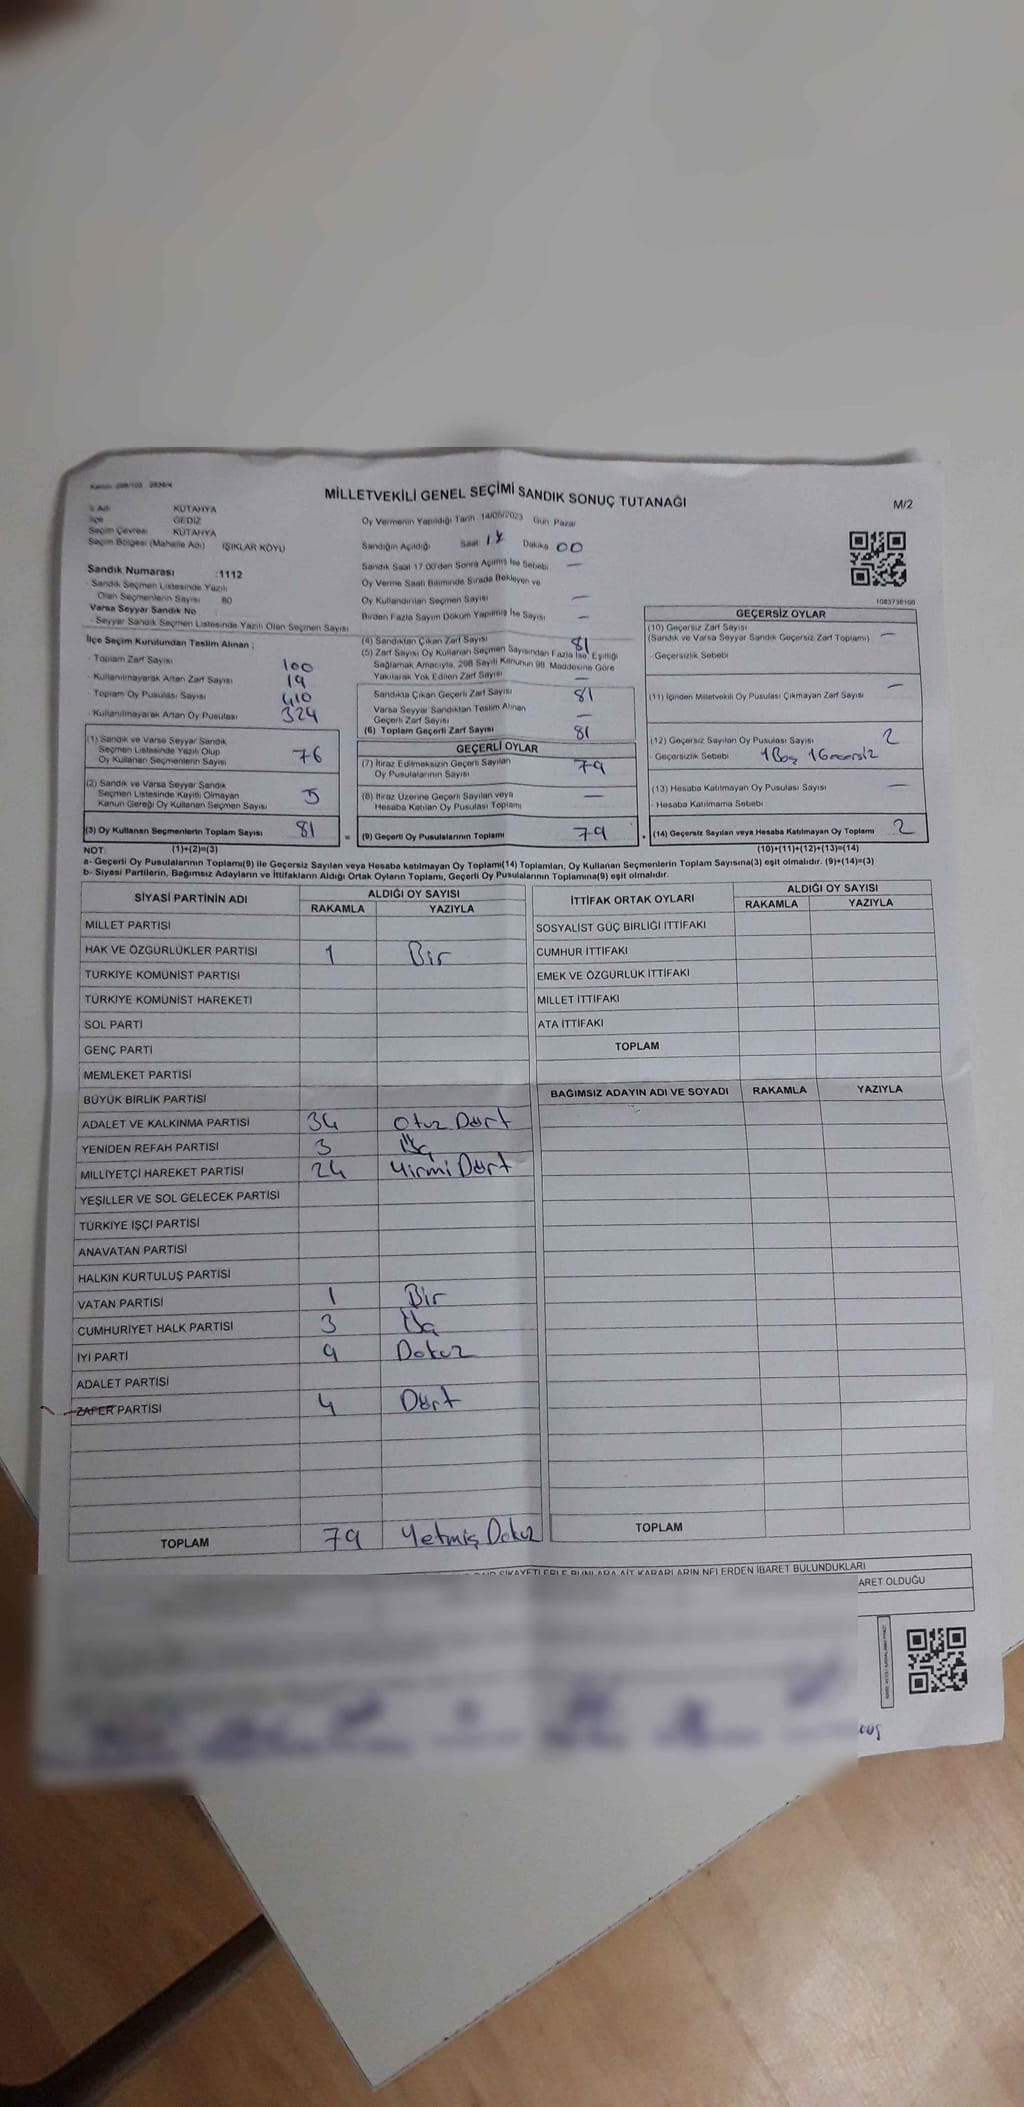 MİLLETVEKİLİ GENEL SEÇİMİ SANDIK SONUÇ TUTANAĞI
M/2
İl Adı KÜTAHYA
İlçe GEDİZ
Seçim Çevresi KÜTAHYA
Seçim Bölgesi (Mahalle Adı) IŞIKLAR KÖYÜ
Sandık Numarası :1112
- Sandık Seçmen Listesinde Yazılı
Olan Seçmenlerin Sayısı 80
Varsa Seyyar Sandık No :
- Seyyar Sandık Seçmen Listesinde Yazılı Olan Seçmen Sayısı
İlçe Seçim Kurulundan Teslim Alınan ;
- Toplam Zarf Sayısı 100
- Kullanılmayarak Artan Zarf Sayısı 19
- Toplam Oy Pusulası Sayısı 410
- Kullanılmayarak Artan Oy Pusulası 324
(1) Sandık ve Varsa Seyyar Sandık
Seçmen Listesinde Yazılı Olup
Oy Kullanan Seçmenlerin Sayısı 76
(2) Sandık ve Varsa Seyyar Sandık
Seçmen Listesinde Kayıtlı Olmayan
Kanun Gereği Oy Kullanan Seçmen Sayısı 5
(3) Oy Kullanan Seçmenlerin Toplam Sayısı 81
Oy Vermenin Yapıldığı Tarih 14/05/2023 Gün Pazar
Sandığın Açıldığı Saat Dakika 00
Sandık Saat 17.00'den Sonra Açılmış İse Sebebi —
Oy Verme Saati Bitiminde Sırada Bekleyen ve
Oy Kullandırılan Seçmen Sayısı —
Birden Fazla Sayım Döküm Yapılmış İse Sayısı —
(4) Sandıktan Çıkan Zarf Sayısı 81
(5) Zarf Sayısı Oy Kullanan Seçmen Sayısından Fazla İse, Eşitliği
Sağlamak Amacıyla, 298 Sayılı Kanunun 98. Maddesine Göre
Yakılarak Yok Edilen Zarf Sayısı —
Sandıkta Çıkan Geçerli Zarf Sayısı 81
Varsa Seyyar Sandıktan Teslim Alınan
Geçerli Zarf Sayısı —
(6) Toplam Geçerli Zarf Sayısı 81
GEÇERLİ OYLAR
(7) İtiraz Edilmeksizin Geçerli Sayılan
Oy Pusulalarının Sayısı 79
(8) İtiraz Üzerine Geçerli Sayılan veya
Hesaba Katılan Oy Pusulası Toplamı —
= (9) Geçerli Oy Pusulalarının Toplamı 79
1083738100
GEÇERSİZ OYLAR
(10) Geçersiz Zarf Sayısı
(Sandık ve Varsa Seyyar Sandık Geçersiz Zarf Toplamı) —
- Geçersizlik Sebebi
(11) İçinden Milletvekili Oy Pusulası Çıkmayan Zarf Sayısı —
(12) Geçersiz Sayılan Oy Pusulası Sayısı 2
- Geçersizlik Sebebi 1 Boş 1 Geçersiz
(13) Hesaba Katılmayan Oy Pusulası Sayısı —
- Hesaba Katılmama Sebebi
+ (14) Geçersiz Sayılan veya Hesaba Katılmayan Oy Toplamı 2
NOT: (1)+(2)=(3) (10)+(11)+(12)+(13)=(14)
a- Geçerli Oy Pusulalarının Toplamı(9) ile Geçersiz Sayılan veya Hesaba katılmayan Oy Toplamı(14) Toplamları, Oy Kullanan Seçmenlerin Toplam Sayısına(3) eşit olmalıdır. (9)+(14)=(3)
b- Siyasi Partilerin, Bağımsız Adayların ve İttifakların Aldığı Ortak Oyların Toplamı, Geçerli Oy Pusulalarının Toplamına(9) eşit olmalıdır.
SİYASİ PARTİNİN ADI ALDIĞI OY SAYISI
RAKAMLA YAZIYLA
MİLLET PARTİSİ
HAK VE ÖZGÜRLÜKLER PARTİSİ 1 Bir
TÜRKİYE KOMÜNİST PARTİSİ
TÜRKİYE KOMÜNİST HAREKETİ
SOL PARTİ
GENÇ PARTİ
MEMLEKET PARTİSİ
BÜYÜK BİRLİK PARTİSİ
ADALET VE KALKINMA PARTİSİ 34 Otuz Dört
YENİDEN REFAH PARTİSİ 3 Üç
MİLLİYETÇİ HAREKET PARTİSİ 24 Yirmi Dört
YEŞİLLER VE SOL GELECEK PARTİSİ
TÜRKİYE İŞÇİ PARTİSİ
ANAVATAN PARTİSİ
HALKIN KURTULUŞ PARTİSİ
VATAN PARTİSİ 1 Bir
CUMHURİYET HALK PARTİSİ 3 Üç
İYİ PARTİ 9 Dokuz
ADALET PARTİSİ
ZAFER PARTİSİ 4 Dört
TOPLAM 79 Yetmiş Dokuz
İTTİFAK ORTAK OYLARI ALDIĞI OY SAYISI
RAKAMLA YAZIYLA
SOSYALİST GÜÇ BİRLİĞİ İTTİFAKI
CUMHUR İTTİFAKI
EMEK VE ÖZGÜRLÜK İTTİFAKI
MİLLET İTTİFAKI
ATA İTTİFAKI
TOPLAM
BAĞIMSIZ ADAYIN ADI VE SOYADI RAKAMLA YAZIYLA
TOPLAM
ŞİKAYETLERLE BUNLARA AİT KARARLARIN NELERDEN İBARET BULUNDUKLARI
ARET OLDUĞU